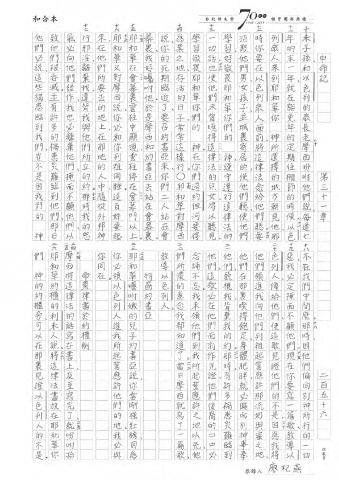 和合本
台北靈糧堂 70
申命記 第三十一章 二百五十六
未子孫和以色列的眾長老摩西吩咐他們說每逢七
年的末一年就在豁免年的定期住棚節的時候以色
列眾人來到耶和華你 神所選擇的地方朝見他那
時你要在以色列眾人面前將這律法念給他們聽要
招聚他們男女孩子並城裏寄居的使他們聽使他們
學習好敬畏耶和華你們的 神謹守遵行這律法的
一切話也使他們未曾曉得這律法的兒女得以聽見
學習敬畏耶和華你們的 神在你們過約但河要得
為業之地存活的日子常常這樣行耶和華對摩西
說你的死期臨近了要召約書亞來你們二人站在會
幕裏我好囑咐他於是摩西和約書亞去站在會幕裏
耶和華在會幕裏雲柱中顯現雲柱停在會幕門以上
耶和華又對摩西說你必和你列祖同睡這百姓要起
來在他們所要去的地上在那地的人中隨從外邦神
行邪淫離棄我違背我與他們所立的約那時我的怒
氣必向他們發作我也必離棄他們掩面不顧他們以
致他們被吞滅並有許多的禍患災難臨到他們那日
他們必說這些禍患臨到我們豈不是因我們的 神
不在我們中間麼那時因他們偏向別神所行的一切
惡我必定掩面不顧他們現在你要寫一篇歌教導以
色列人傳給他們使這歌見證他們的不是因為我將
他們領進我向他們列祖起誓應許那流奶與蜜之地
他們在那裏吃得飽足身體肥胖就必偏向別神事奉
他們藐視我背棄我的約那時有許多禍患災難臨到
他們這歌必在他們面前作見證他們後裔的口中必
念誦不忘我未領他們到我所起誓應許之地以先他
們所懷的意念我都知道了當日摩西就寫了一篇歌
教導以色列人
耶和華囑咐嫩的兒子約書亞說你當剛強壯膽因為
你必領以色列人進我所起誓應許他們的地我必與
你同在
摩西將這律法的話寫在書上及至寫完了就吩咐抬
耶和華約櫃的利未人說將這律法書放在耶和華你
們 神的約櫃旁可以在那裏見證以色列人的不是
抄錄人